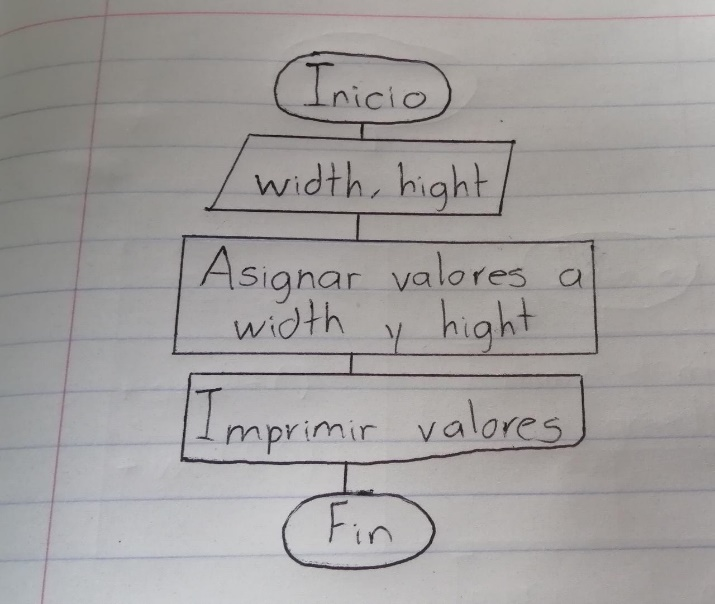 Inicio
width, hight
Asignar valores a
width y hight
Imprimir valores
Fin